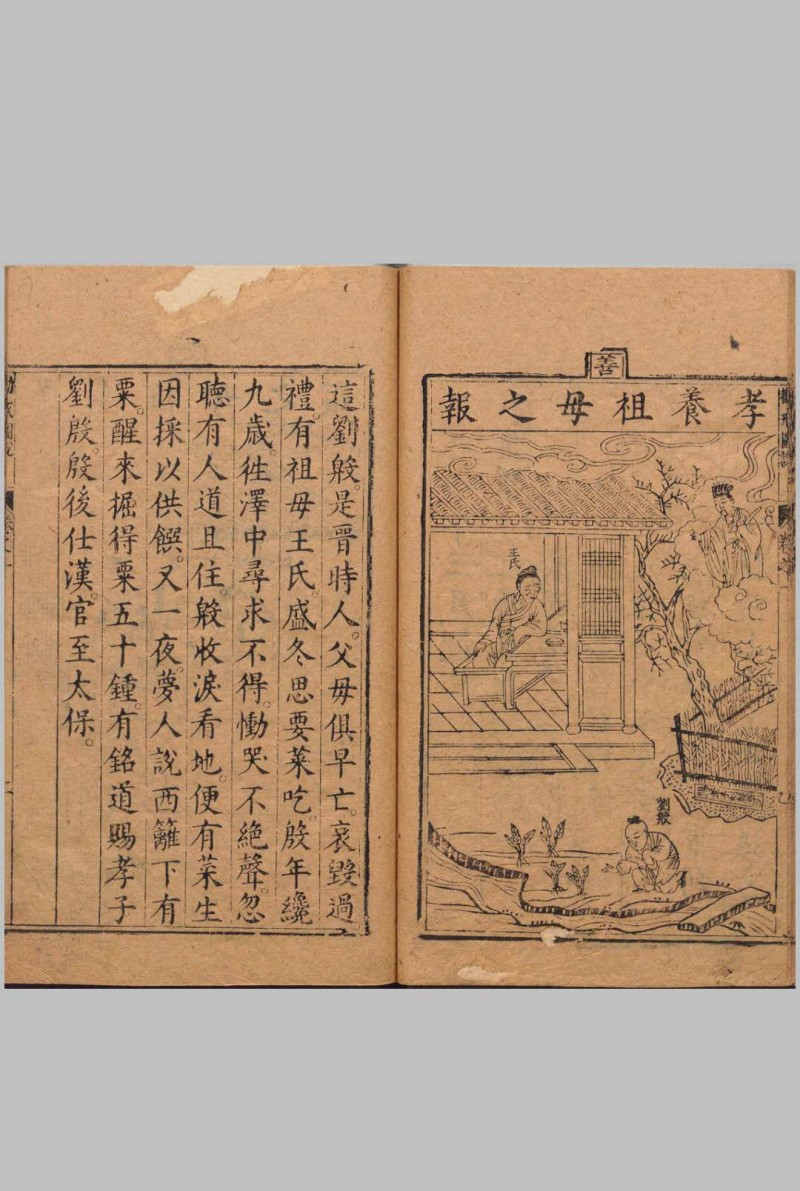 善
孝養祖母之報
王氏
劉殷
這劉殷是晋時人。父母俱早亡。哀毀過
禮。有祖母王氏。盛冬思要菜吃。殷年纔
九歲。徃澤中尋求不得。慟哭不絕聲。忽
聽有人道且住。殷收淚看地。便有菜生
因採以供饌。又一夜。夢人說西籬下有
粟。醒來掘得粟五十鍾。有銘道賜孝子
劉殷。殷後仕漢。官至太保。